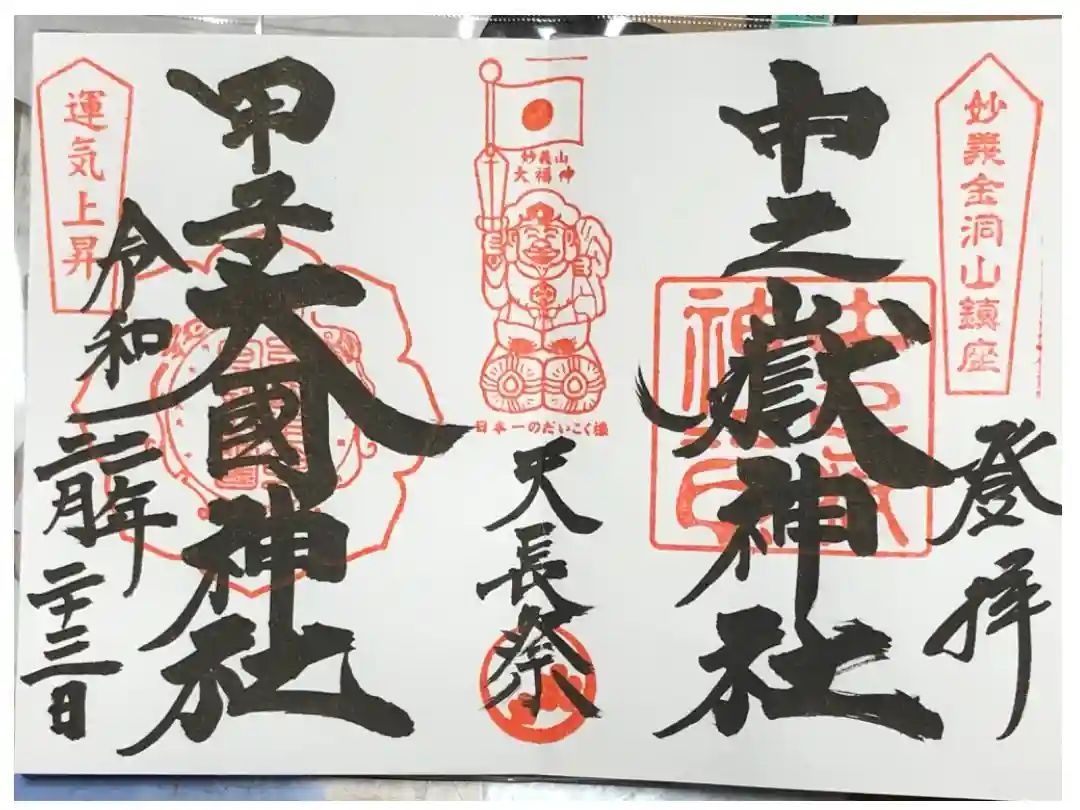 妙義金洞山鎮座
登拝
中之嶽神社
妙義山
大福神
日本一のだいこく様
天長祭
甲子大國神社
運気上昇
令和二年
二月
二十三日